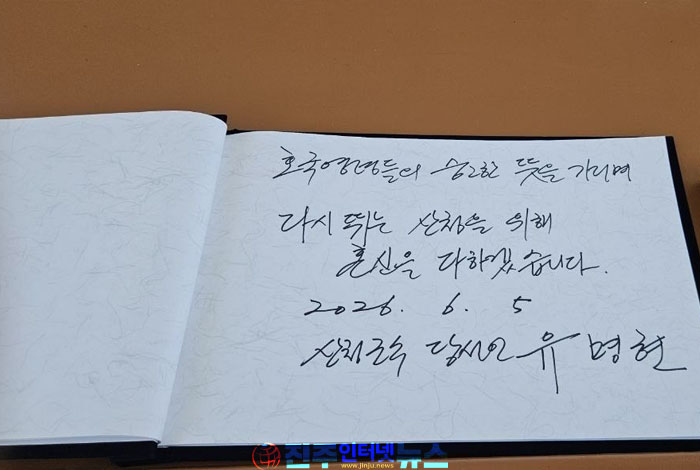 호국영령들의 숭고한 뜻을 기리며
다시 뛰는 산청을 위해
혼신을 다하겠습니다.
2026. 6. 5
산청군수 당선인 유명현
진주인터넷뉴스
www.jinju.news